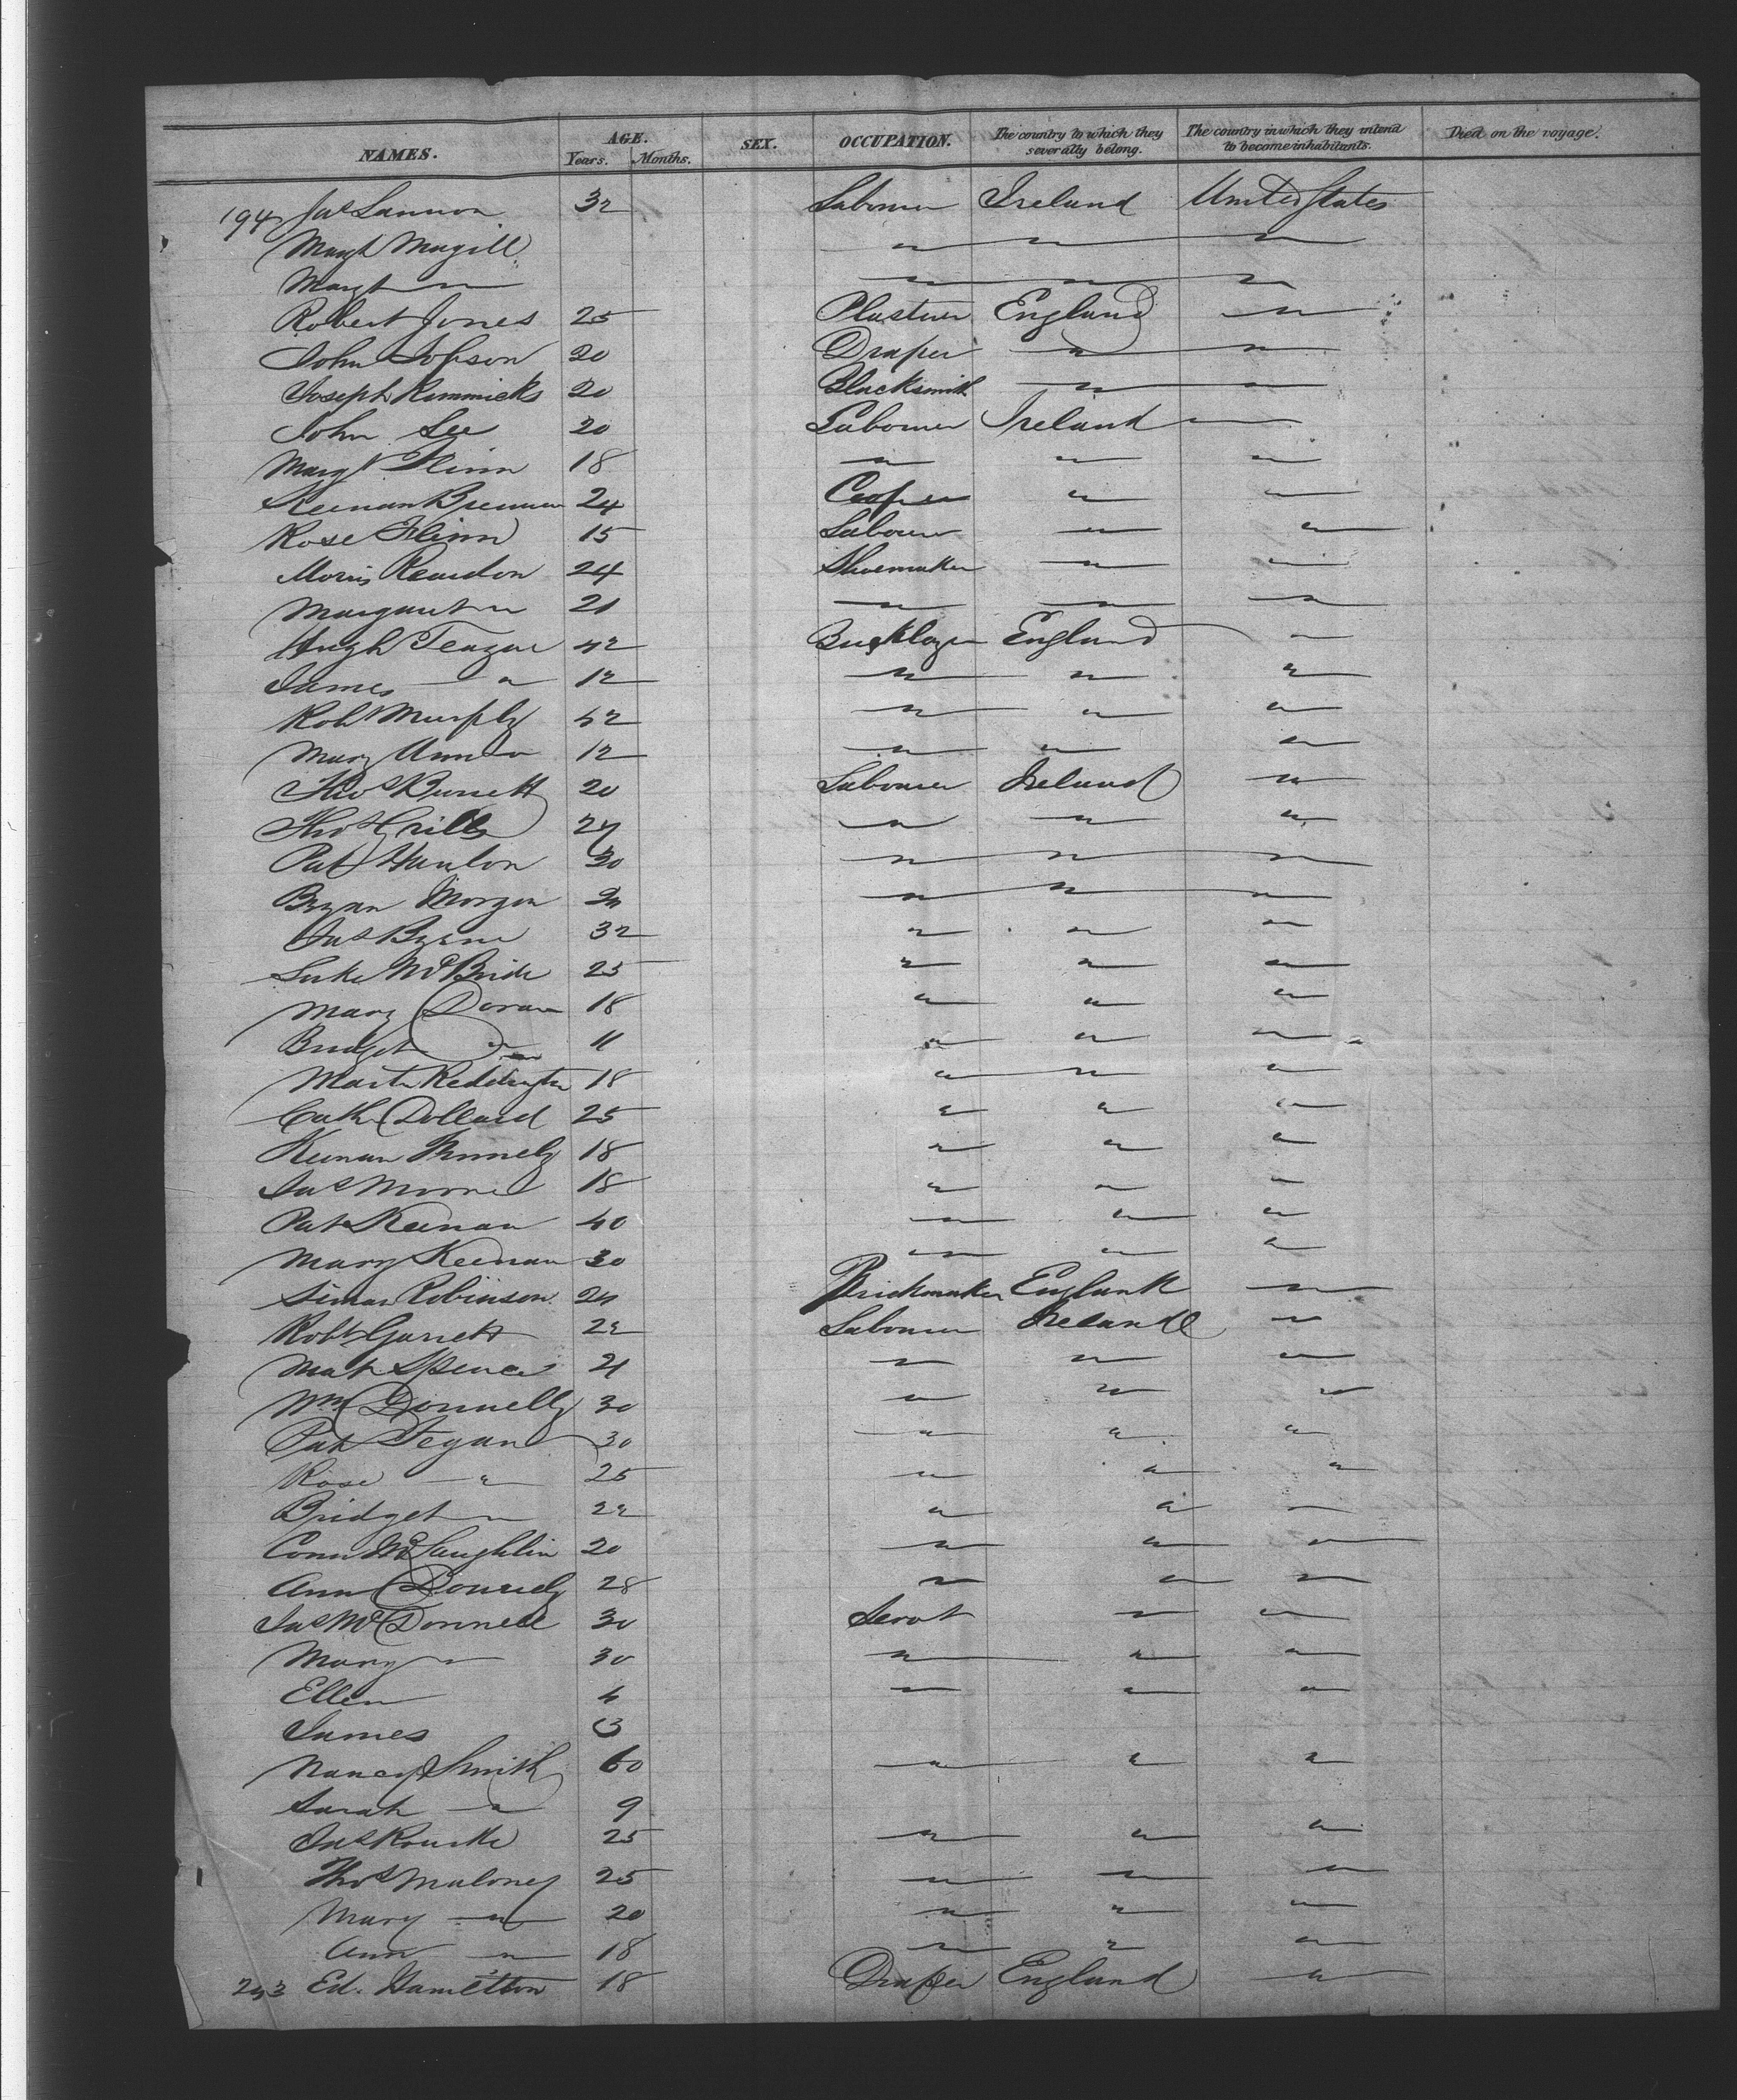 NAMES. AGE. Years. Months. SEX. OCCUPATION. The country to which they severally belong. The country in which they intend to become inhabitants. Died on the voyage.
194 Jas Lannon 32 Labourer Ireland United States
Margt Magill " " "
Margt " " " "
Robert Jones 25 Plasterer England "
John Jobson 20 Draper " "
Joseph Kimmicks 20 Blacksmith " "
John Lee 20 Labourer Ireland
Margt Flinn 18 " " "
Keenan Brennan 24 Cooper " "
Rose Flinn 15 Labourer " "
Morris Reardon 24 Shoemaker " "
Margaret " 21 " " "
Hugh Teague 42 Bricklayer England "
James " 12 " " "
Robt Murphy 42 " " "
Mary Ann " 12 " " "
Thos Burrett 20 Labourer Ireland "
Thos Grills " " "
Pat Hanlon 30 " " "
Bryan Morgan " " "
Jas Byrne 32 " " "
Luke McBride 25 " " "
Mary Doran 18 " " "
Bridget " 11 " " "
Martn Reddington 18 " " "
Cath Dollard 25 " " "
Keenan 18 " " "
Jas Moore 18 " " "
Pat Keenan 40 " " "
Mary Keenan 30 " " "
Simon Robinson 24 Brickmaker England "
Robt Garrett 22 Labourer Ireland "
Mat Spence 21 " " "
Wm Donnelly 30 " " "
Pat Fegan 30 " " "
Rose " 25 " " "
Bridget " 22 " " "
Conn McLaughlin 20 " " "
Ann Donnely 28 " " "
Jas McDonnell 30 Servt " "
Mary " 30 " " "
Ellen 4 " " "
James 3
Nancy Smith 60 " " "
Sarah " 9
Jas Rourke 25 " " "
Thos Maloney 25 " " "
Mary " 20 " " "
Ann " 18 " " "
243 Ed. Hamelton 18 Draper England "